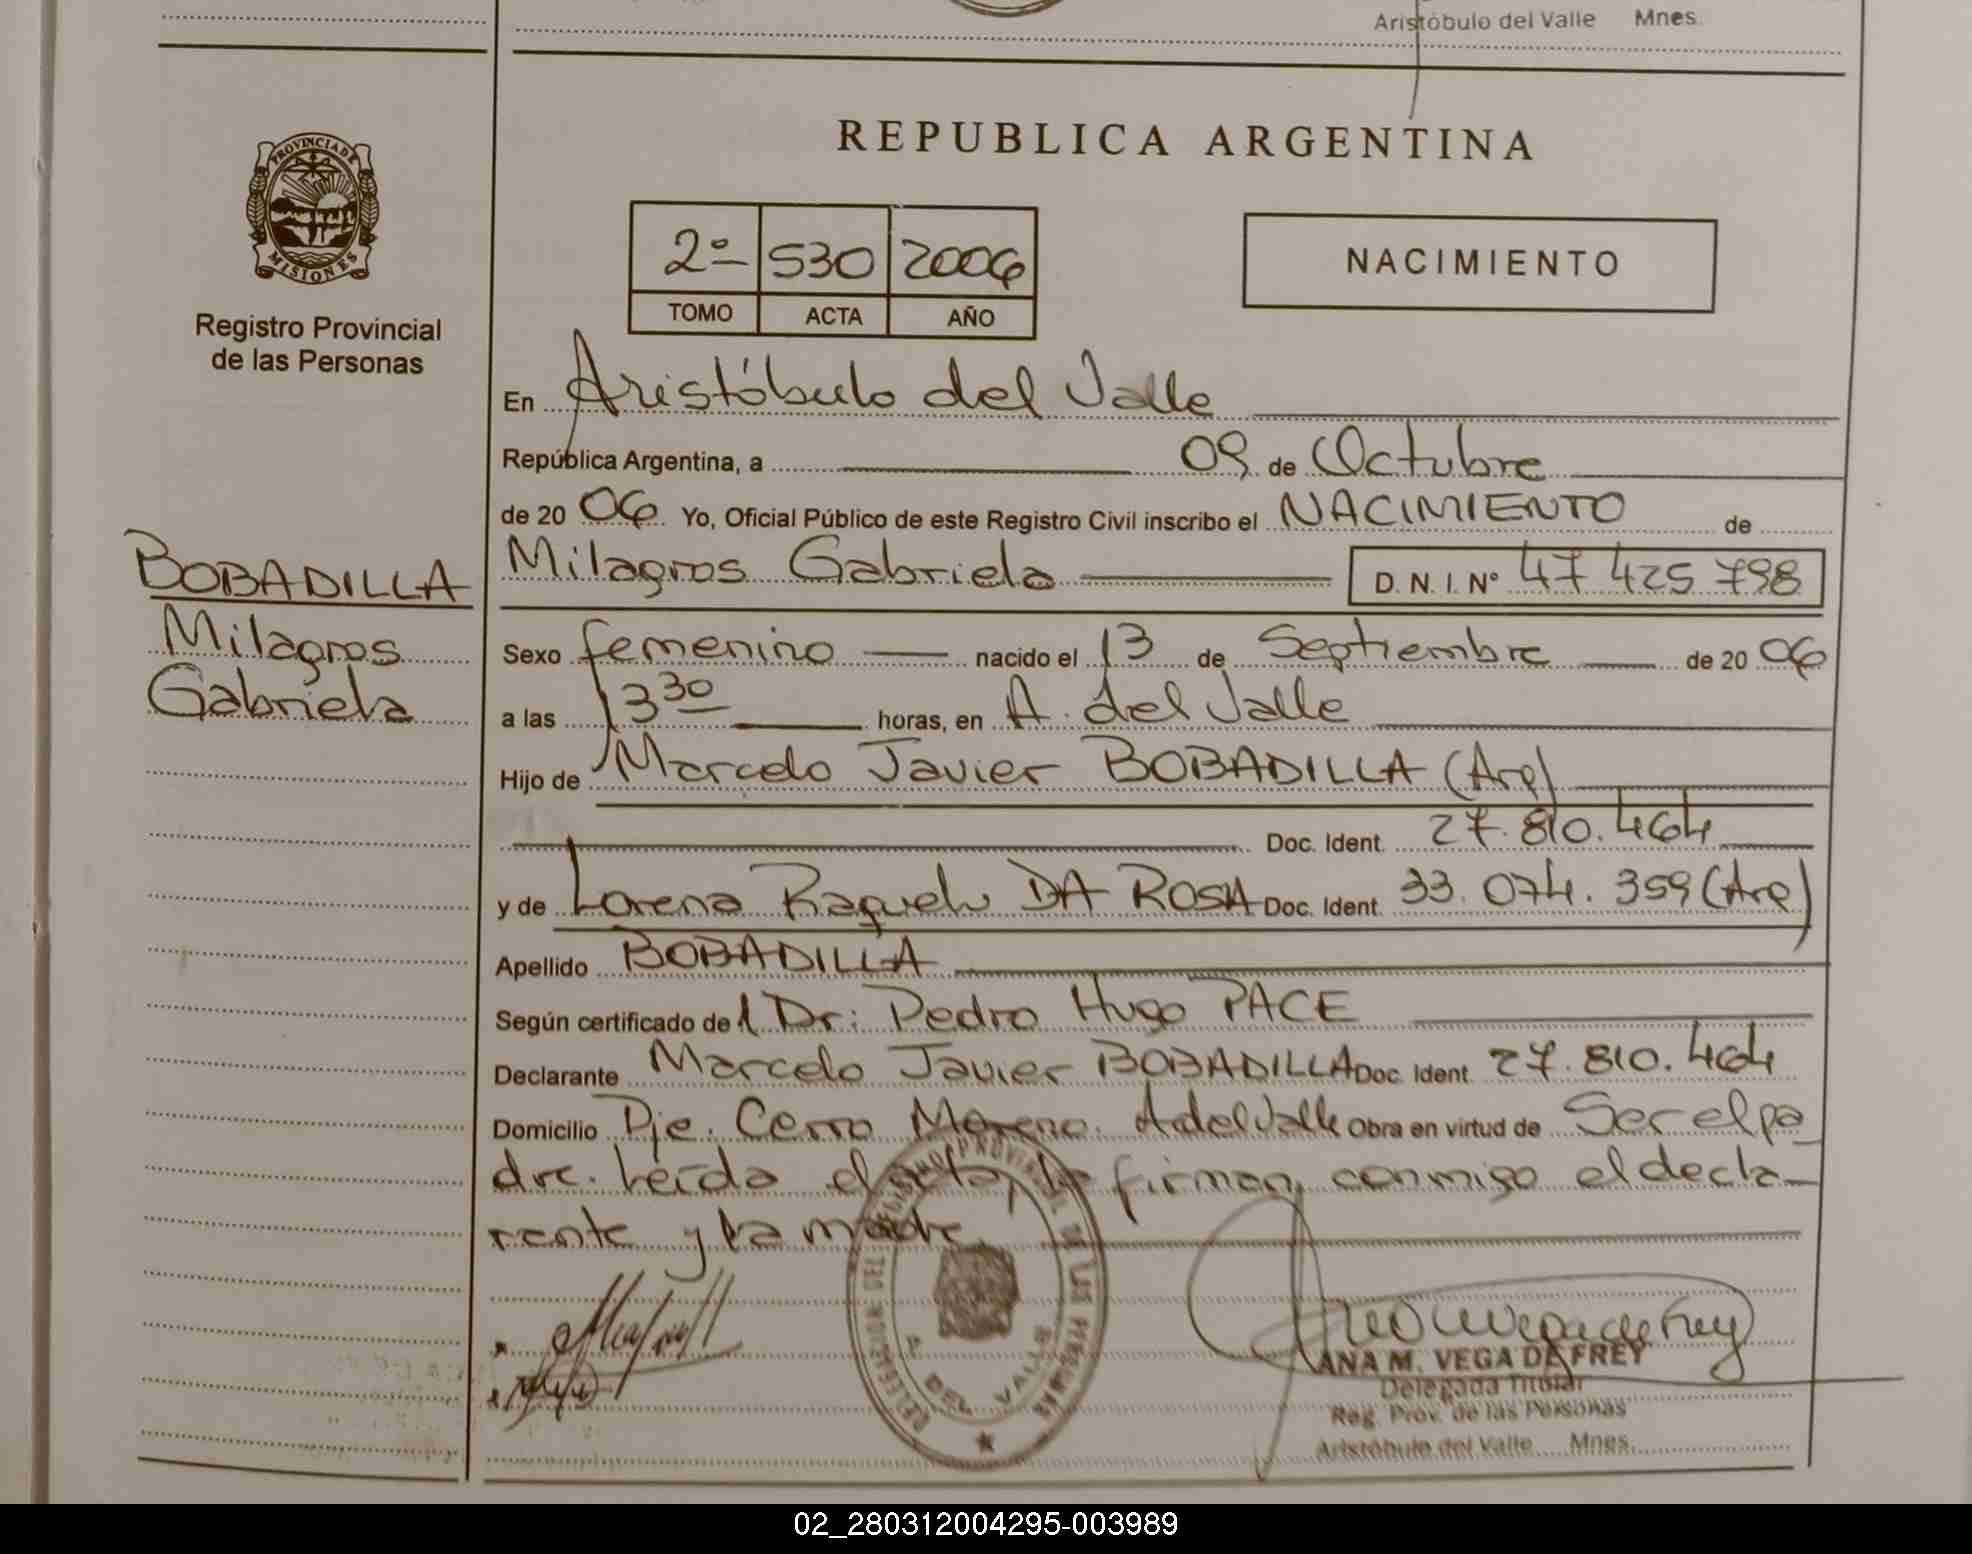 Aristóbulo del Valle Mnes.
PROVINCIA DE
MISIONES
Registro Provincial
de las Personas
REPUBLICA ARGENTINA
2º 530 2006
TOMO ACTA AÑO
NACIMIENTO
En Aristóbulo del Valle
República Argentina, a 09 de Octubre
de 20 06 Yo, Oficial Público de este Registro Civil inscribo el NACIMIENTO de
Milagros Gabriela D. N. I. Nº 47 425 798
BOBADILLA
Milagros
Gabriela
Sexo femenino nacido el 13 de Septiembre de 20 06
a las 13 30 horas, en A. del Valle
Hijo de Marcelo Javier BOBADILLA (Arg)
Doc. Ident. 27.810.464
y de Lorena Raquel DA ROSA Doc. Ident. 33.074.359 (Arg)
Apellido BOBADILLA
Según certificado de l Dr: Pedro Hugo PACE
Declarante Marcelo Javier BOBADILLA Doc. Ident. 27.810.464
Domicilio Pje. Cerro Moreno. A del Valle Obra en virtud de Ser el pa
dre. Leída el acta, la firman conmigo el decla-
rante y la madre
DELEGACION DEL REGISTRO PROVINCIAL DE LAS PERSONAS
A. DEL VALLE
ANA M. VEGA DE FREY
Delegada Titular
Reg. Prov. de las Personas
Aristóbulo del Valle Mnes.
02_280312004295-003989